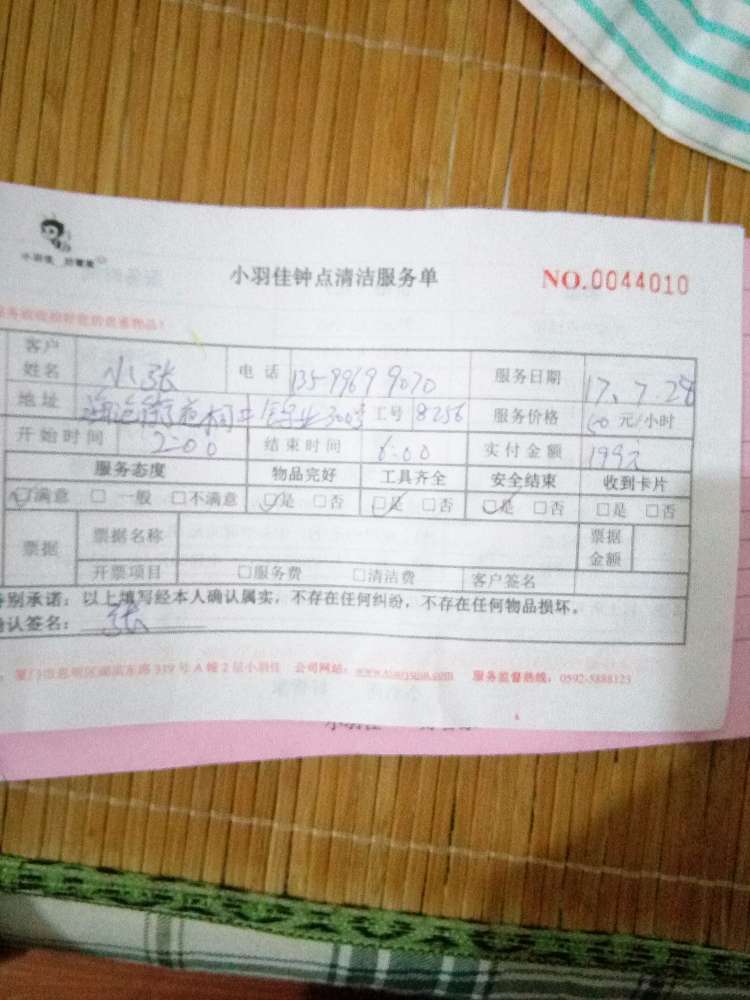 小羽佳 好管家
小羽佳钟点清洁服务单 NO.0044010
客户姓名 小张 电话 13599699070 服务日期 17.7.28
地址 工号 8256 服务价格 元/小时
开始时间 2:00 结束时间 6:00 实付金额 199元
服务态度 物品完好 工具齐全 安全结束 收到卡片
☑满意 □一般 □不满意 ☑是 □否 ☑是 □否 ☑是 □否 □是 □否
票据 票据名称 票据金额
开票项目 □服务费 □清洁费 客户签名
特别承诺：以上填写经本人确认属实，不存在任何纠纷，不存在任何物品损坏。
确认签名： 张
厦门市思明区湖滨东路319号A幢2层小羽佳 公司网站： 服务监督热线：0592-5888123